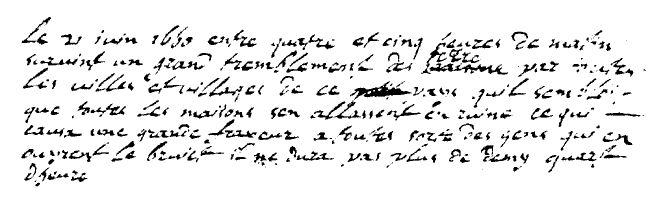 Le 21 juin 1660 entre quatre et cinq heures de matin
survint un grand tremblement de terre par toutes
les villes et villages de ce pais quil sembloi-
que toutes les maisons sen allassent en ruine ce qui
causa une grande fraieur a toutes sorte des gens qui en
ouyrent le bruict il ne dura pas plus de demy quart
dheure